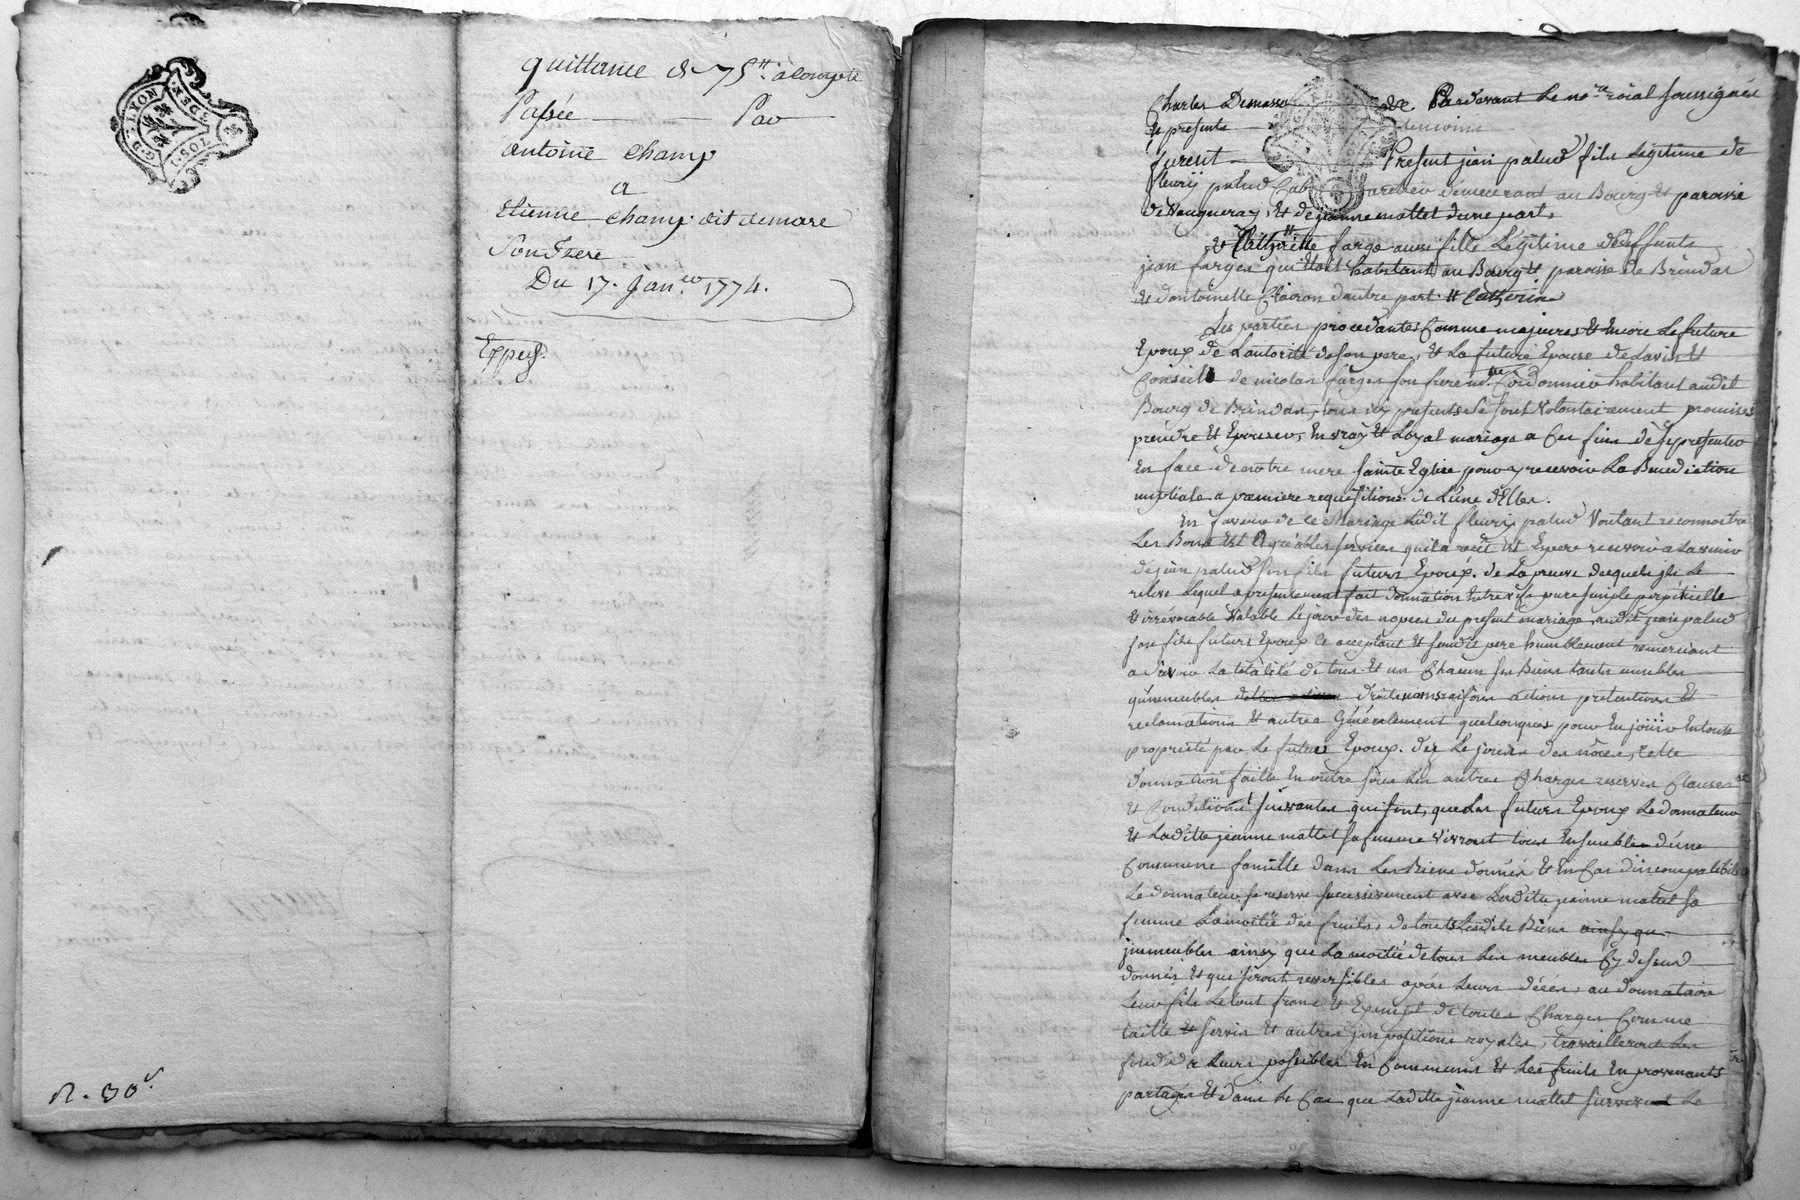 G.D. LYON
2 DEN
quittance de 75tt. àcompte
Passée Par
antoine champ
a
Etienne champ dit demare
Son frere
Du 17. Janer 1774.
Exped.
R. 30s
Charles &c. Pardevant Le nore roial soussigné
& presents temoins
furent Present jean palud fils Légitime de
fleury palud demeurant au Bourg Et paroisse
de Vaugneray, Et de jeanne mattet d'une part,
& tt farge aussi fille Légitime deffunts
jean farges qui Etoit habitant au Bourg Et paroisse de Brindas
Et dantoinette d'autre part. tt Catherine
Les parties procedantes Comme majeures Et Encore Le futur
Epoux de L'autorité de son pere, Et La future Epouse de L'avis Et
Conseil de nicolas farges son frere Cordonnier habitant audit
Bourg de Brindas, tous icy presents Se sont Volontairement promises
prendre Et Epouser, En vray Et Loyal mariage a Ces fins de se presenter
En face de notre mere Sainte Eglise pour y recevoir La Benediction
nuptiale a premiere requisitions de L'une d'Elles.
En faveur de ce Mariage Ledit fleury palud Voulant reconnoitre
Les Bons Et Agréables services qu'il a recût Et Espere recevoir a Lavenir
de jean palud son fils futurs Epoux. de La preuve desquels il Le
releve Lequel a presentement fait donnation Entrevifs pure simple perpétuelle
& irrévocable Valable Le jour des nopces du present mariage, audit jean palud
son fils futurs Epoux Ce acceptant Et sondit pere humblement remerciant
a Savoir La totalité de tous Et un Chacun ses Biens tants meubles
qu'immeubles droits noms raisons actions pretentions Et
reclamations Et autres Généralement quelconques pour En joüir En toute
propriété par Le futur Epoux. dez Le jour des nôces, Cette
donnation faite En outre sous Les autres Charges reserves Clauses
Et Conditions suivantes qui sont, que Les futurs Epoux Le donnateur
Et Ladite jeanne mattet sa femme Vivront tous Ensembles d'une
Commune famille dans Les Biens donnés Et En Cas d'incompatibilité
Le donnateur se reserve successivement avec Ladite jeanne mattet sa
femme La moitié des fruits, de touts Lesdits Biens ainsy qu
jmmeubles ainsy que La moitié de tous Les meubles Cy dessus
donnés Et qui seront reversibles après Leurs décés, au donnataire
Leur fils Le tout franc Et Exempt de toutes Charges Comme
taille Et servis Et autres jmpositions royales, travailleront Les
fonds a Leurs possibles En Communs Et Les fruits En provenants
partagés Et dans Le Cas que Ladite jeanne mattet Le